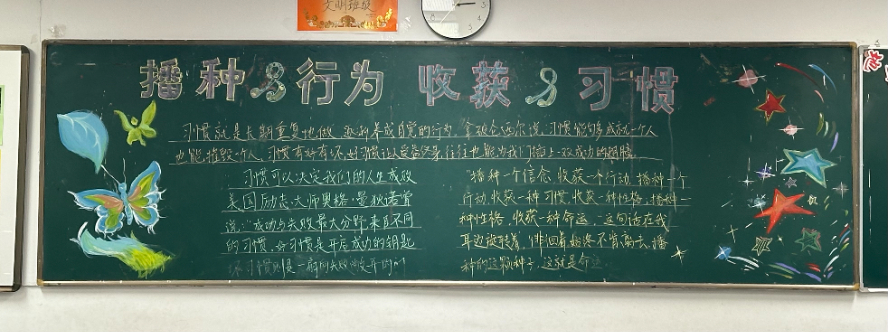 文明班级
播种行为 收获习惯
习惯就是长期重复地做，逐渐养成自觉的行动。拿破仑·希尔说：习惯能够成就一个人
也能摧毁一个人。习惯有好有坏，好习惯让
习惯可以决定我们的人生成败
美国励志大师奥格·曼狄诺曾
说："成功与失败最大分野，来自不同
的习惯，好习惯是开启成功的钥匙
坏习惯则是一扇向失败敞开的门
"播种一个信念，收获一个行动，播种一个
行动，收获一种习惯，收获一种性格，播种一
种性格，收获一种命运。"这句话在我
耳边
种的这颗种子，这就是命